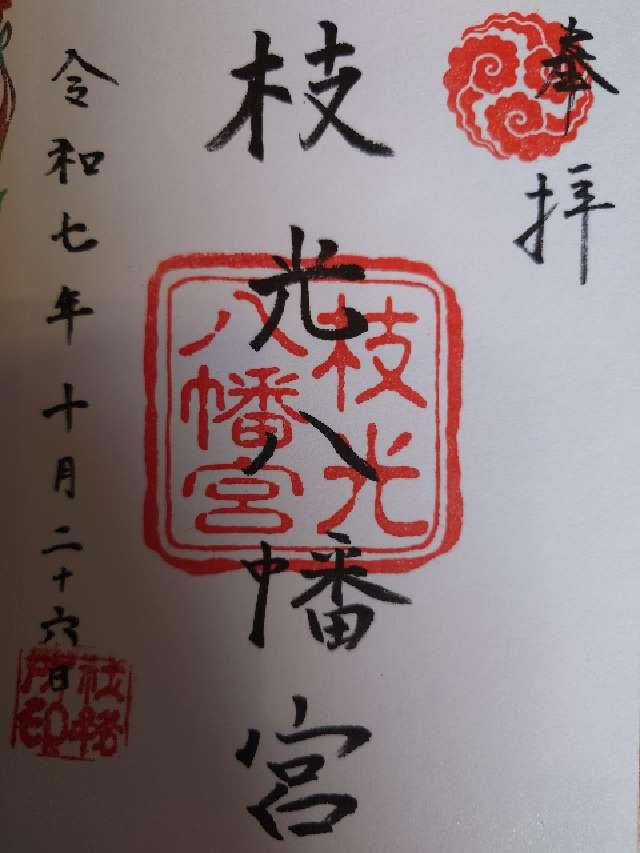 奉拝
枝光八幡宮
枝光
八幡宮
令和七年十月二十六日
社務
所印